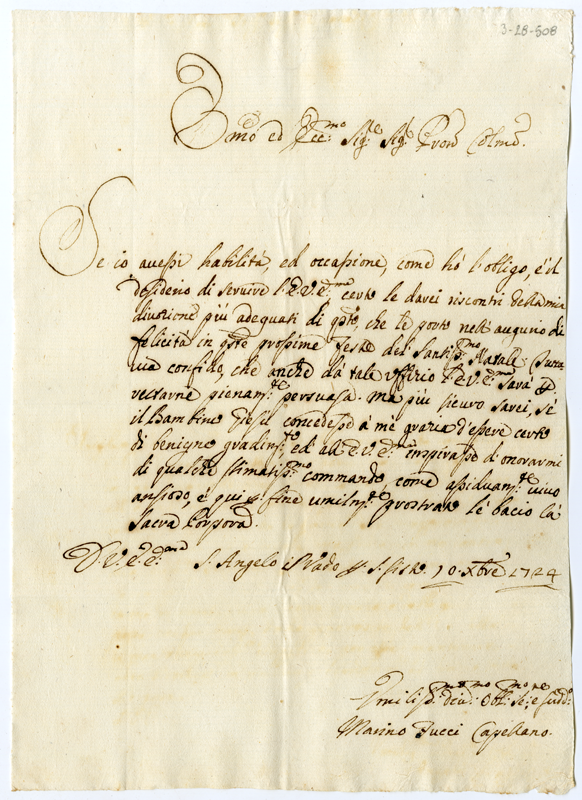 3-28-508
Emo ed Rec.mo Sig.e Sig.e Pron Colmo.
Se io avessi habilità, ed occasione, come hò l'obligo, e'il
desiderio di servire l'E.V.E.ma certo le darei riscontri della mia
divozione più adequati di q.to, che le porto nell'augurio di
felicità in q.ste prossime feste del Santiss.mo Natale: Tutta
via confido, che anche dà tale uffizio l'E.V.E.ma sarà p
restarne pienam.te persuasa. Ma più sicuro sarei, sè
il Bambino Giesù concedesse à me grazia d'essere certo
di benigno gradim.to, ed all'E.V.E.ma inspirasse di onorarmi
di qualche stimatiss.mo commando, come assiduam.te vivo
ansioso, e quì p fine umilm.te prostrato lè bacio la
Sacra Porpora.
D.V.E.E.ma S. Angelo in Vado p S. Sisto 10. Xbre 1724
Umiliss.mo devo.mo Obl.mo Se.re e
Marino Tucci Capellano.